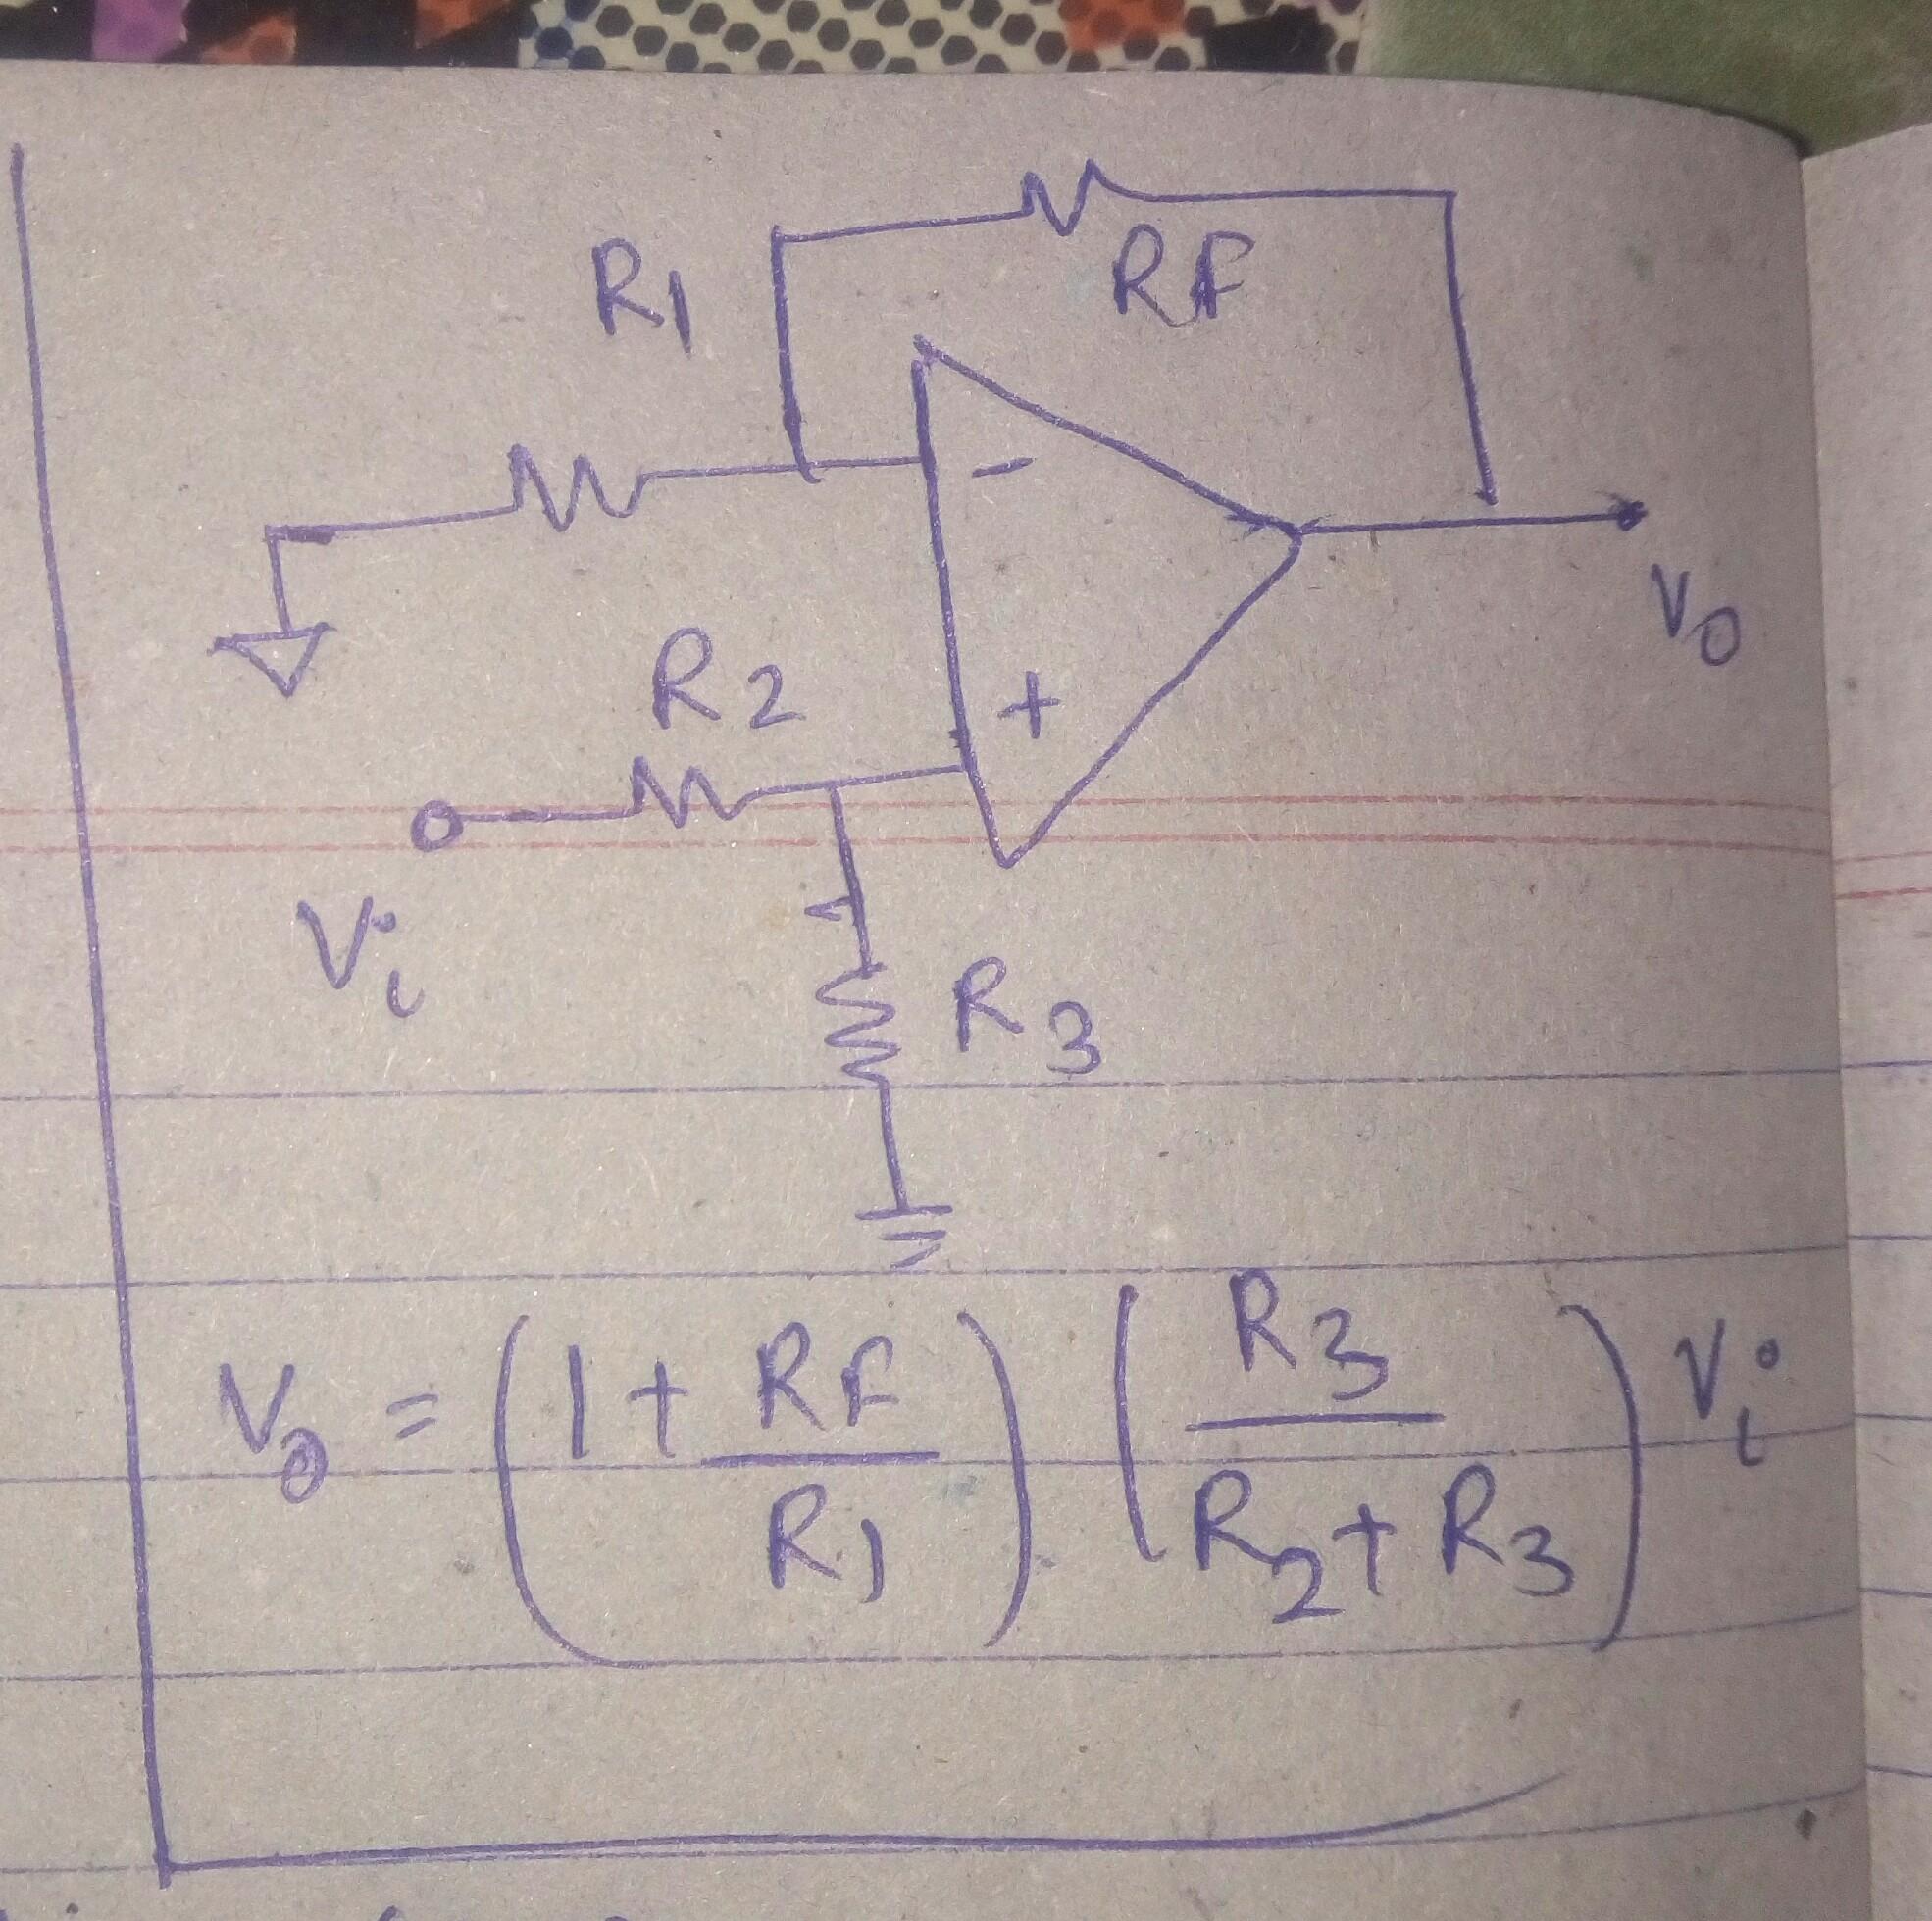 R1
RF
-
V0
R2
+
Vi
R3
V0 = (1 + RF/R1) (R3/(R2 + R3)) Vi